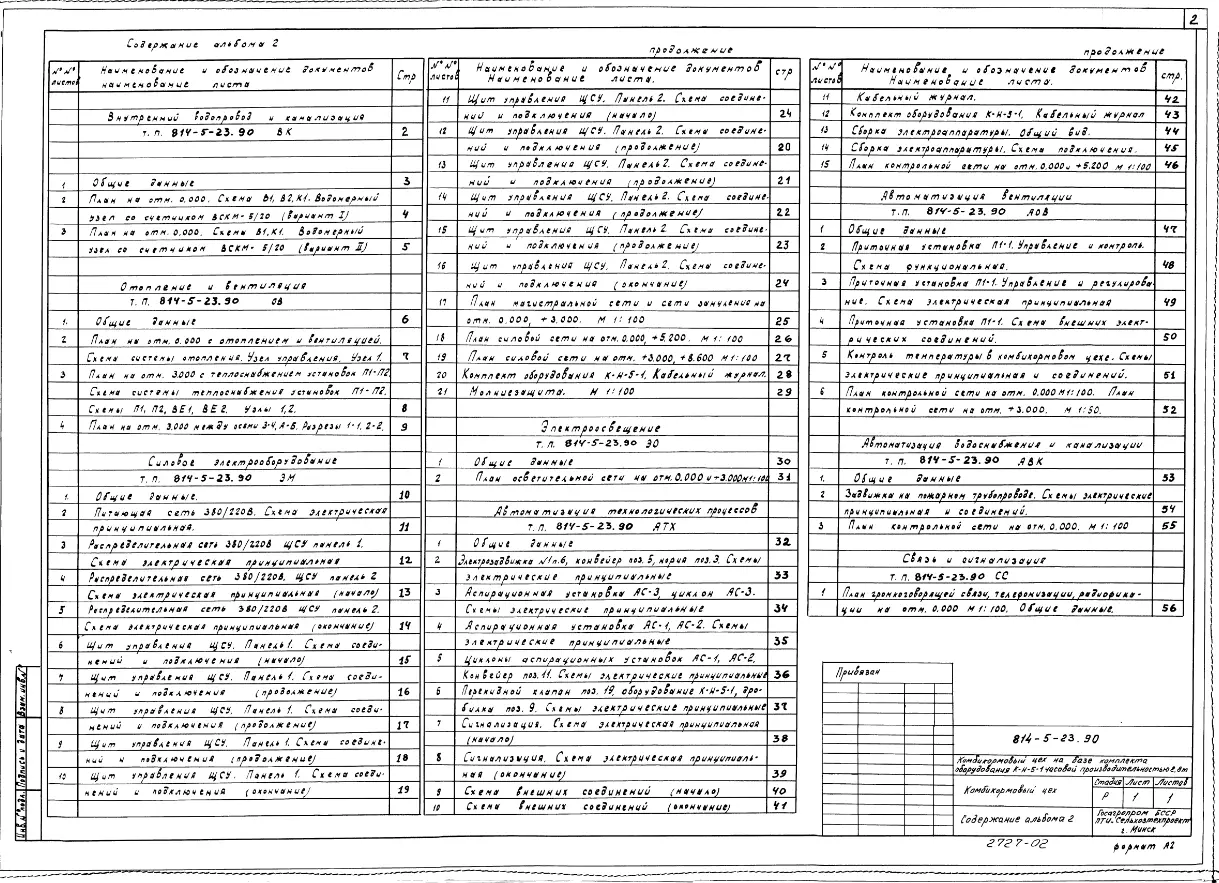 2
Содержание альбома 2
продолжение
продолжение
№ №
листов
Наименование и обозначение документов
наименование листа
Стр
Внутренний водопровод и канализация
т. п. 814-5-23.90 ВК 2
1 Общие данные 3
2 План на отм. 0.000. Схема В1, В2, К1. Водомерный
узел со счетчиком ВСКМ-5/20 (вариант I) 4
3 План на отм. 0.000. Схемы В1, К1. Водомерный
узел со счетчиком ВСКМ-5/20 (вариант II) 5
Отопление и вентиляция
т. п. 814-5-23.90 ОВ
1. Общие данные 6
2 План на отм. 0.000 с отоплением и вентиляцией.
Схема системы отопления. Узел управления. Узел 1. 7
3 План на отм. 3.000 с теплоснабжением установок П1-П2
Схема системы теплоснабжения установок П1-П2.
Схемы П1, П2, ВЕ1, ВЕ2. Узлы 1,2. 8
4 План на отм. 3.000 между осями 3-4, А-Б. Разрезы 1-1, 2-2. 9
Силовое электрооборудование
т. п. 814-5-23.90 ЭМ
1. Общие данные. 10
2 Питающая сеть 380/220В. Схема электрическая
принципиальная. 11
3 Распределительная сеть 380/220В ЩСУ панель 1.
Схема электрическая принципиальная 12
4 Распределительная сеть 380/220В. ЩСУ панель 2
Схема электрическая принципиальная (начало) 13
5 Распределительная сеть 380/220В ЩСУ панель 2.
Схема электрическая принципиальная (окончание) 14
6 Щит управления ЩСУ. Панель 1. Схема соеди-
нений и подключения (начало) 15
7 Щит управления ЩСУ. Панель 1. Схема соеди-
нений и подключения (продолжение) 16
8 Щит управления ЩСУ. Панель 1. Схема соеди-
нений и подключения (продолжение) 17
9 Щит управления ЩСУ. Панель 1. Схема соедине-
ний и подключения (продолжение) 18
10 Щит управления ЩСУ. Панель 1. Схема соеди-
нений и подключения (окончание) 19
№ №
листов
Наименование и обозначение документов
Наименование листа.
стр
11 Щит управления ЩСУ. Панель 2. Схема соедине-
ний и подключения (начало) 24
12 Щит управления ЩСУ. Панель 2. Схема соедине-
ний и подключения (продолжение) 20
13 Щит управления ЩСУ. Панель 2. Схема соедине-
ний и подключения (продолжение) 21
14 Щит управления ЩСУ. Панель 2. Схема соедине-
ний и подключения (продолжение) 22
15 Щит управления ЩСУ. Панель 2. Схема соедине-
ний и подключения (продолжение) 23
16 Щит управления ЩСУ. Панель 2. Схема соедине-
ний и подключения (окончание) 24
17 План магистральной сети и сети зануления на
отм. 0.000, +3.000. М 1:100 25
18 План силовой сети на отм. 0.000, +5.200. М 1:100 26
19 План силовой сети на отм. +3.000, +8.600 М 1:100 27
20 Комплект оборудования К-Н-5-1. Кабельный журнал. 28
21 Молниезащита. М 1:100 29
Электроосвещение
т. п. 814-5-23.90 ЭО
1 Общие данные 30
2 План осветительной сети на отм. 0.000 и +3.000 М 1:100 31
Автоматизация технологических процессов
т. п. 814-5-23.90 АТХ
1 Общие данные 32
2 Электрозадвижка №1 п.6, конвейер поз. 5, нория поз. 3. Схемы
электрические принципиальные 33
3 Аспирационная установка АС-3, циклон АС-3.
Схемы электрические принципиальные 34
4 Аспирационная установка АС-1, АС-2. Схемы
электрические принципиальные 35
5 Циклоны аспирационных установок АС-1, АС-2,
Конвейер поз. 11. Схемы электрические принципиальные 36
6 Перекидной клапан поз. 19, оборудование К-Н-5-1, дро-
билка поз. 9. Схемы электрические принципиальные 37
7 Сигнализация. Схема электрическая принципиальная
(начало) 38
8 Сигнализация. Схема электрическая принципиаль-
ная (окончание) 39
9 Схема внешних соединений (начало) 40
10 Схема внешних соединений (окончание) 41
№ №
листов
Наименование и обозначение документов
Наименование листа.
стр.
11 Кабельный журнал. 42
12 Комплект оборудования К-Н-5-1. Кабельный журнал 43
13 Сборка электроаппаратуры. Общий вид. 44
14 Сборка электроаппаратуры. Схема подключения. 45
15 План контрольной сети на отм. 0.000 и +5.200 М 1:100 46
Автоматизация вентиляции
т. п. 814-5-23.90 АОВ
1 Общие данные 47
2 Приточная установка П1-1. Управление и контроль.
Схема функциональная. 48
3 Приточная установка П1-1. Управление и регулирова-
ние. Схема электрическая принципиальная 49
4 Приточная установка П1-1. Схема внешних элект-
рических соединений. 50
5 Контроль температуры в комбикормовом цехе. Схемы
электрические принципиальная и соединений. 51
6 План контрольной сети на отм. 0.000 М 1:100. План
контрольной сети на отм. +3.000. М 1:50. 52
Автоматизация водоснабжения и канализации
т. п. 814-5-23.90 АВК
1. Общие данные 53
2 Задвижка на пожарном трубопроводе. Схемы электрические
принципиальная и соединений. 54
3 План контрольной сети на отм. 0.000. М 1:100 55
Связь и сигнализация
т. п. 814-5-23.90 СС
1 План громкоговорящей связи, телефонизации, радиофика-
ции на отм. 0.000 М 1:100. Общие данные. 56
Привязан
814-5-23.90
Комбикормовый цех на базе комплекта
оборудования К-Н-5-1 часовой производительностью 2,0т
Комбикормовый цех
Стадия Лист Листов
Р 1 1
Содержание альбома 2
Госагропром БССР
ПТИ.Сельхозтехпроект
г. Минск
2727-02
формат А2
Инв.№ подл. Подпись и дата Взам.инв.№